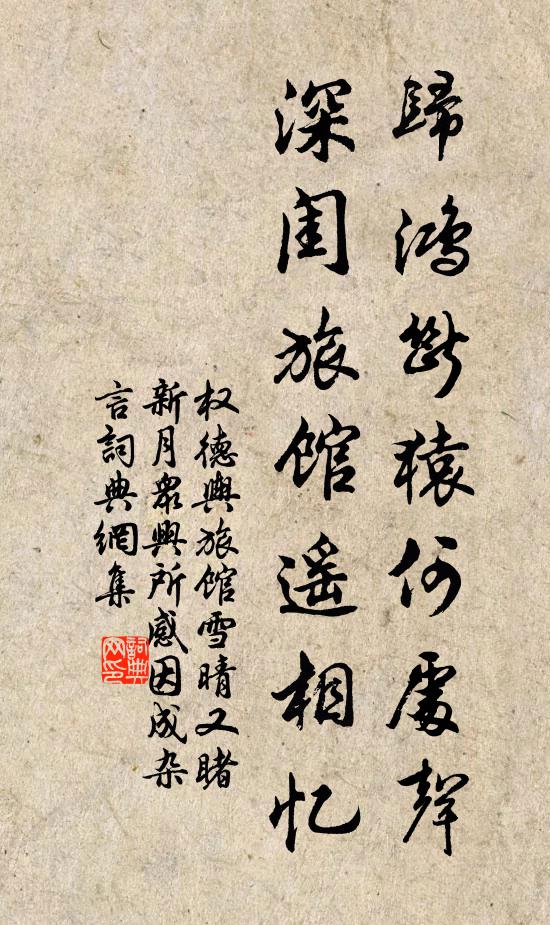 歸鴻斷猿何處聲
深閨旅館遥相忆
权德輿旅馆雪晴又睹
新月衆興所感因成杂
言詞典網集
詞典
网印